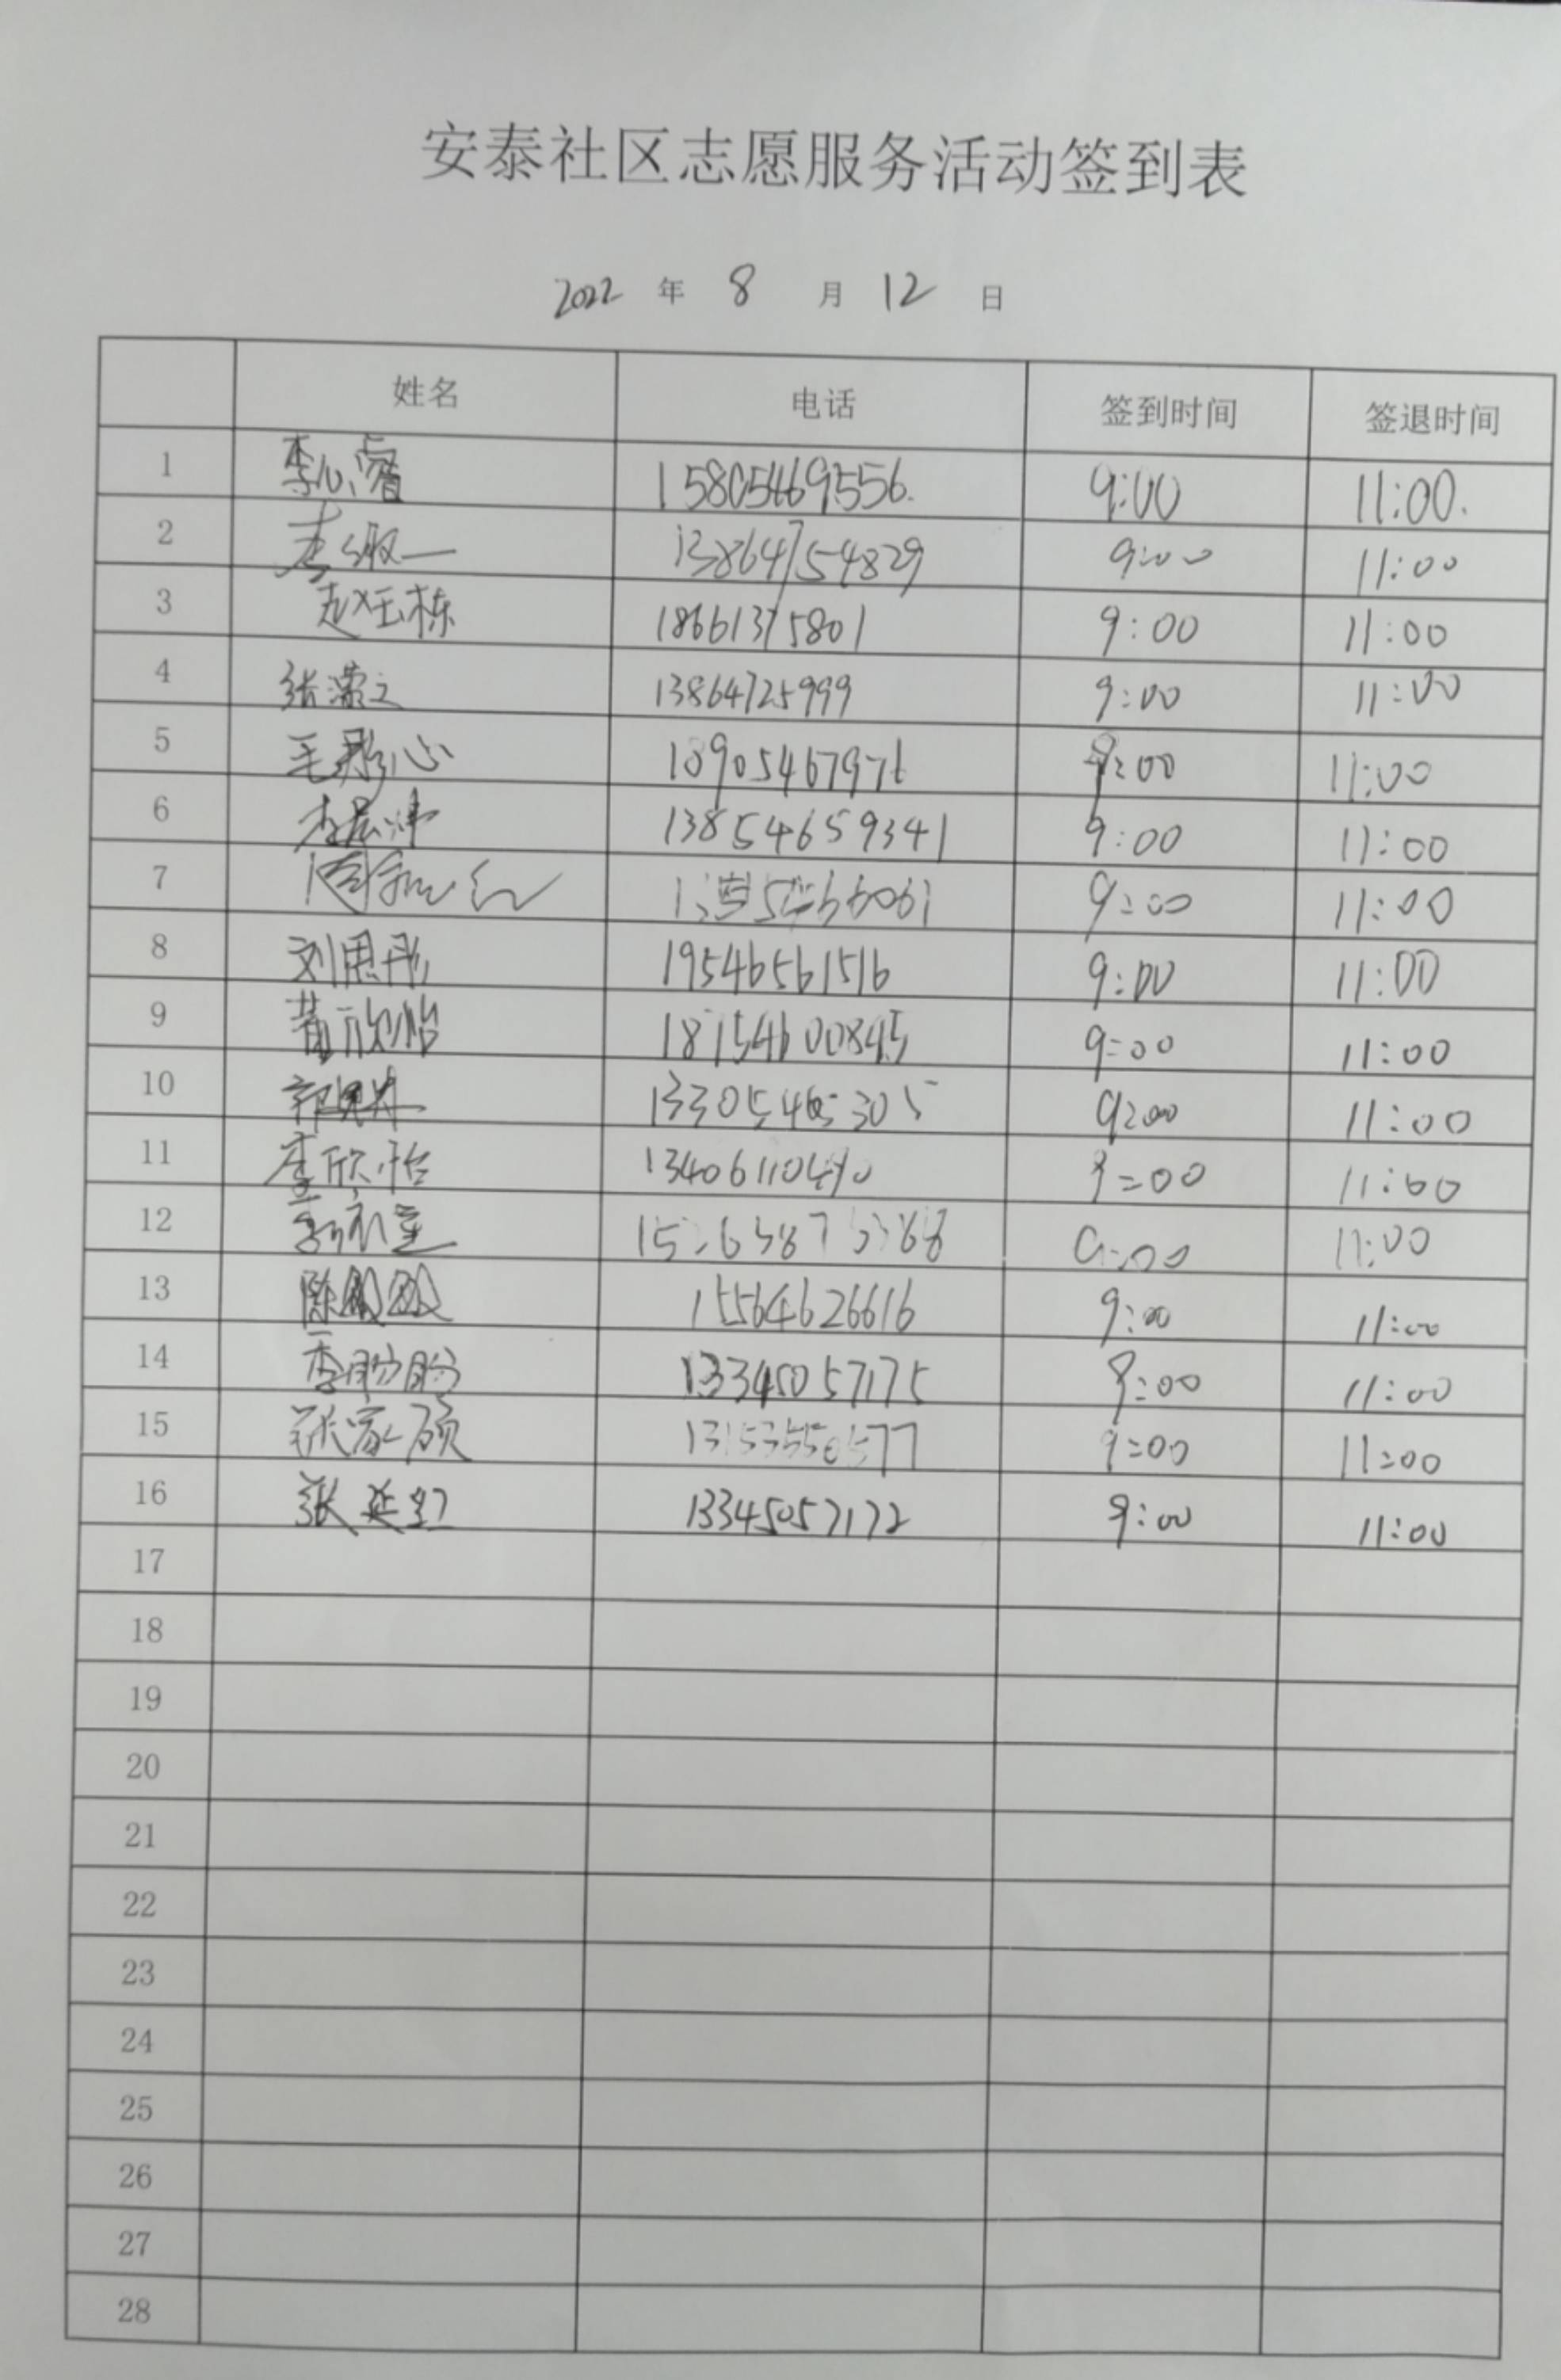 安泰社区志愿服务活动签到表
2022 年 8 月 12 日
姓名 电话 签到时间 签退时间
1 李心睿 15805469556. 9:00 11:00.
2 13864754829 9:00 11:00
3 赵钰栋 18661375801 9:00 11:00
4 张潆之 13864725999 9:00 11:00
5 毛彩心 18905467976 9:00 11:00
6 李晨沛 13854659341 9:00 11:00
7 9:00 11:00
8 刘思彤 19546561516 9:00 11:00
9 黄欣怡 18754600845 9:00 11:00
10 13305465305 9:00 11:00
11 李欣怡 13406110490 9:00 11:00
12 9:00 11:00
13 陈 15564626616 9:00 11:00
14 季盼盼 13345057175 9:00 11:00
15 张家硕 9:00 11:00
16 张延红 13345057172 9:00 11:00
17
18
19
20
21
22
23
24
25
26
27
28